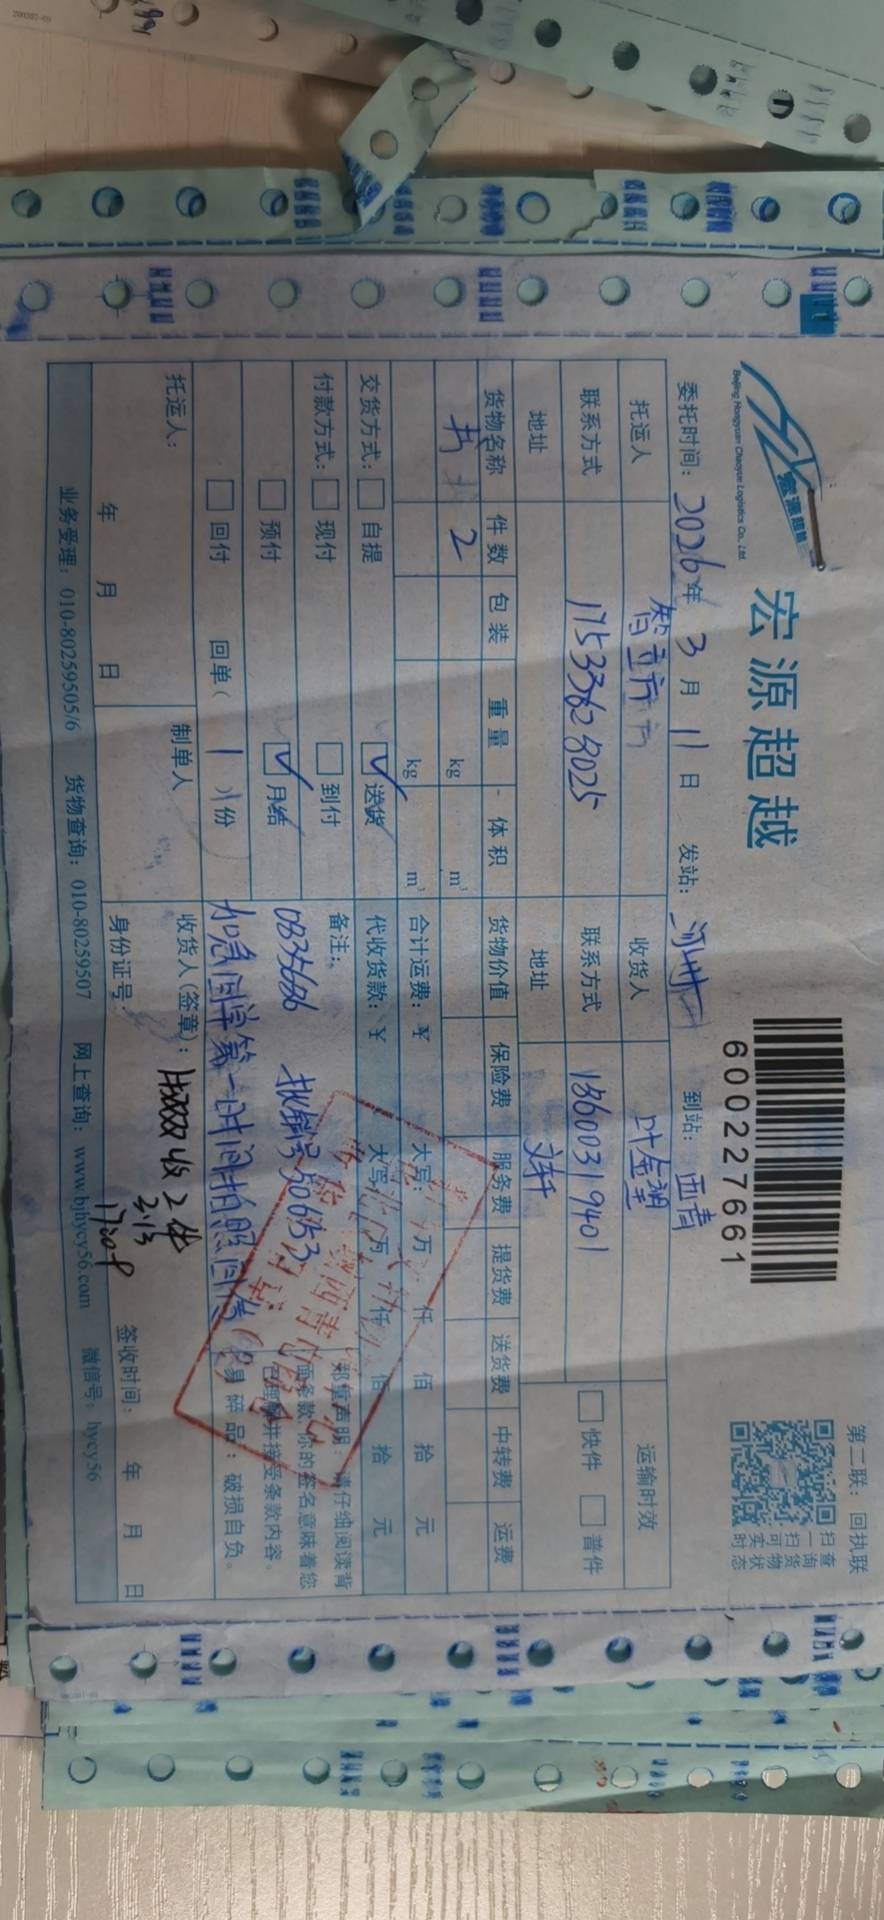 宏源超越
Beijing Hongyuan Chaoyue Logistics Co., Ltd.
宏源超越
6000227661
第二联：回执联
扫一扫
查询货物实时状态
委托时间：2026年 3月 11日 发站： 到站：西青
托运人 收货人 叶金 运输时效
联系方式 17533628025 联系方式 13600319401 快件 普件
地址 地址
货物名称 件数 包装 重量 体积 货物价值 保险费 服务费 提货费 送货费 中转费 运费
书 2 kg m³
kg m³ 合计运费：¥ 大写： 万 仟 佰 拾 元
交货方式： 自提 ✓送货 代收货款：¥ 大写： 万 仟 佰 拾 元
付款方式： 现付 到付 备注：
预付 ✓月结 0835686 批销号 50653
回付 回单（ 1 ）份 加急回单第一时间拍照回传
郑重声明：请仔细阅读背
面条款，你的签名意味着您
已理解并接受条款内容。
易碎品：破损自负。
托运人： 制单人 收货人（签章）： 收2件
3.13
17:08
年 月 日 身份证号： 签收时间： 年 月 日
业务受理：010-80259505/6 货物查询：010-80259507 网上查询：www.bjhycy56.com 微信号：hycy56